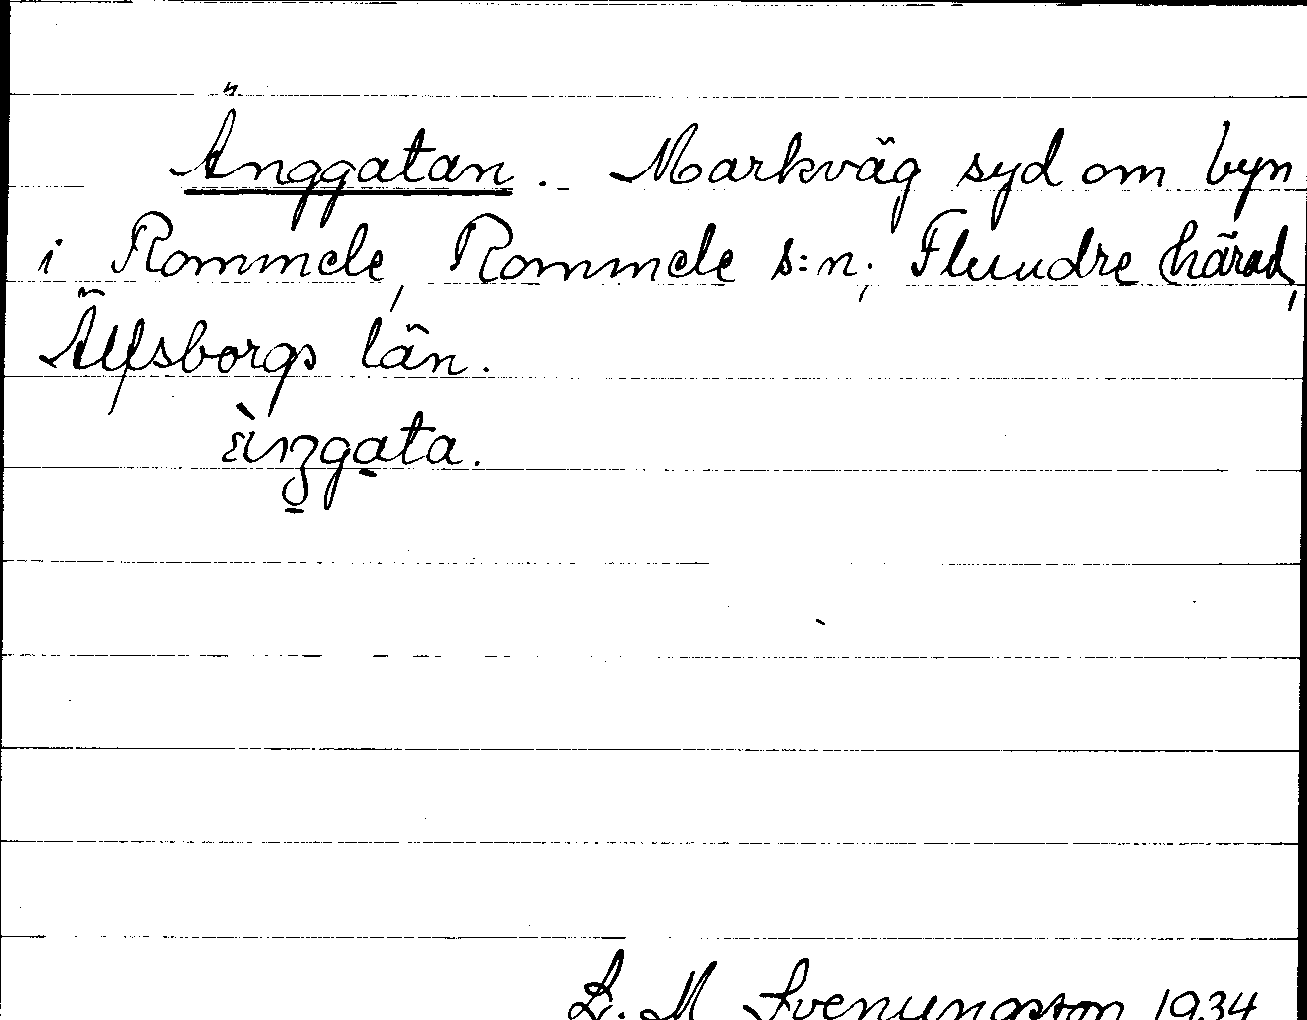 Änggatan. Markväg syd om byn
i Rommele, Rommele s:n; Flundre härad,
Älfsborgs län.
gata.
M Svenungsson 1934